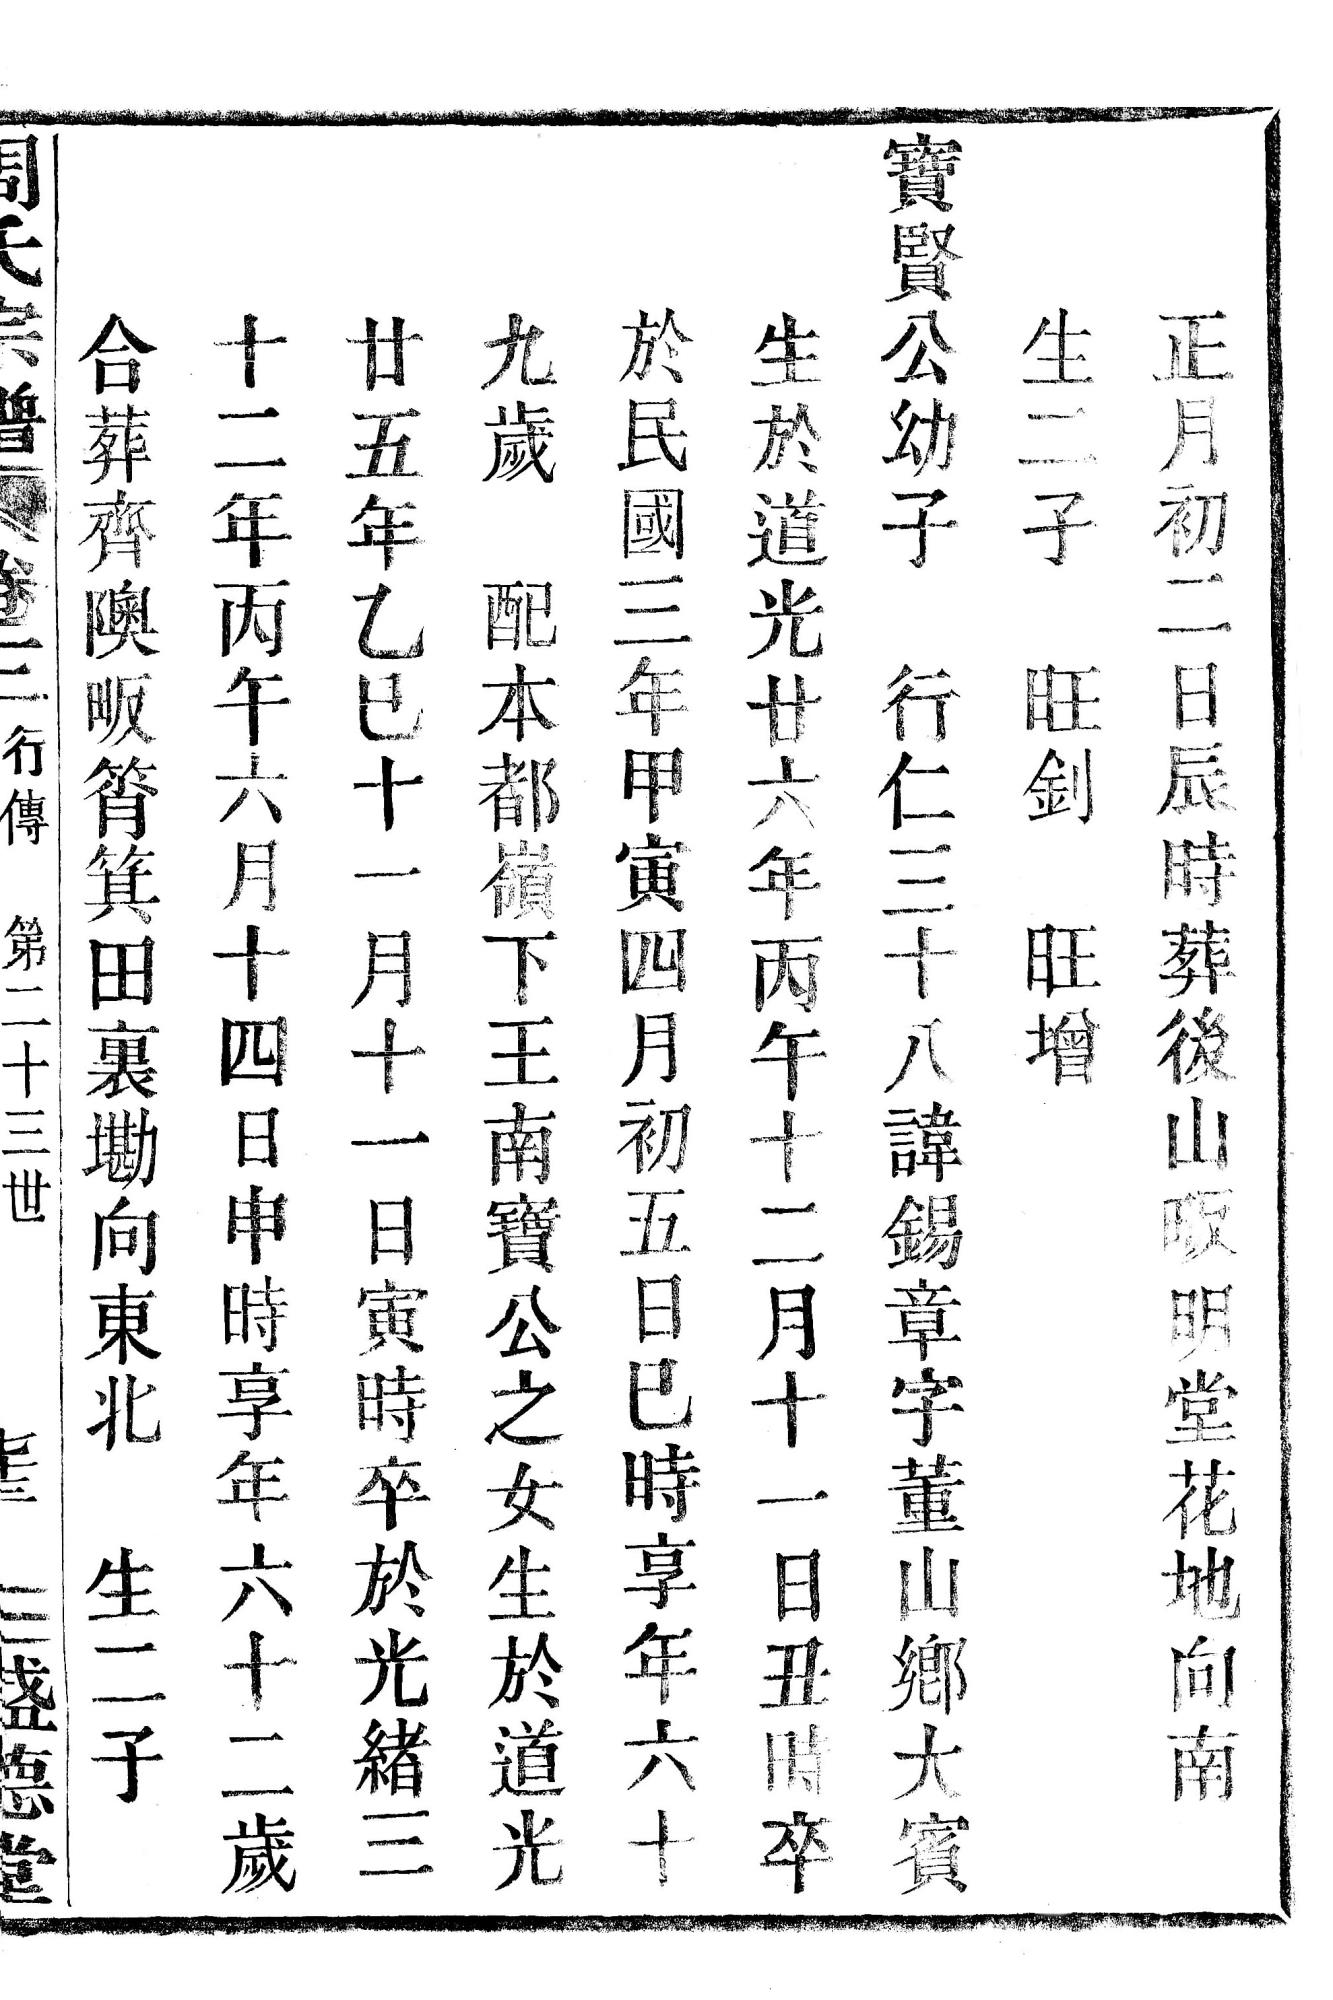 正月初二日辰時葬後山畈明堂花地向南
生二子　旺釗　旺增
寶賢公幼子　行仁三十八諱錫章字董山鄉大賓
生於道光廿六年丙午十二月十一日丑時卒
於民國三年甲寅四月初五日巳時享年六十
九歲　配本都嶺下王南寶公之女生於道光
廿五年乙巳十一月十一日寅時卒於光緒三
十二年丙午六月十四日申時享年六十二歲
合葬齊隩畈筲箕田裏墈向東北　生二子
周氏宗譜　卷三　行傳　第二十三世　盛德堂